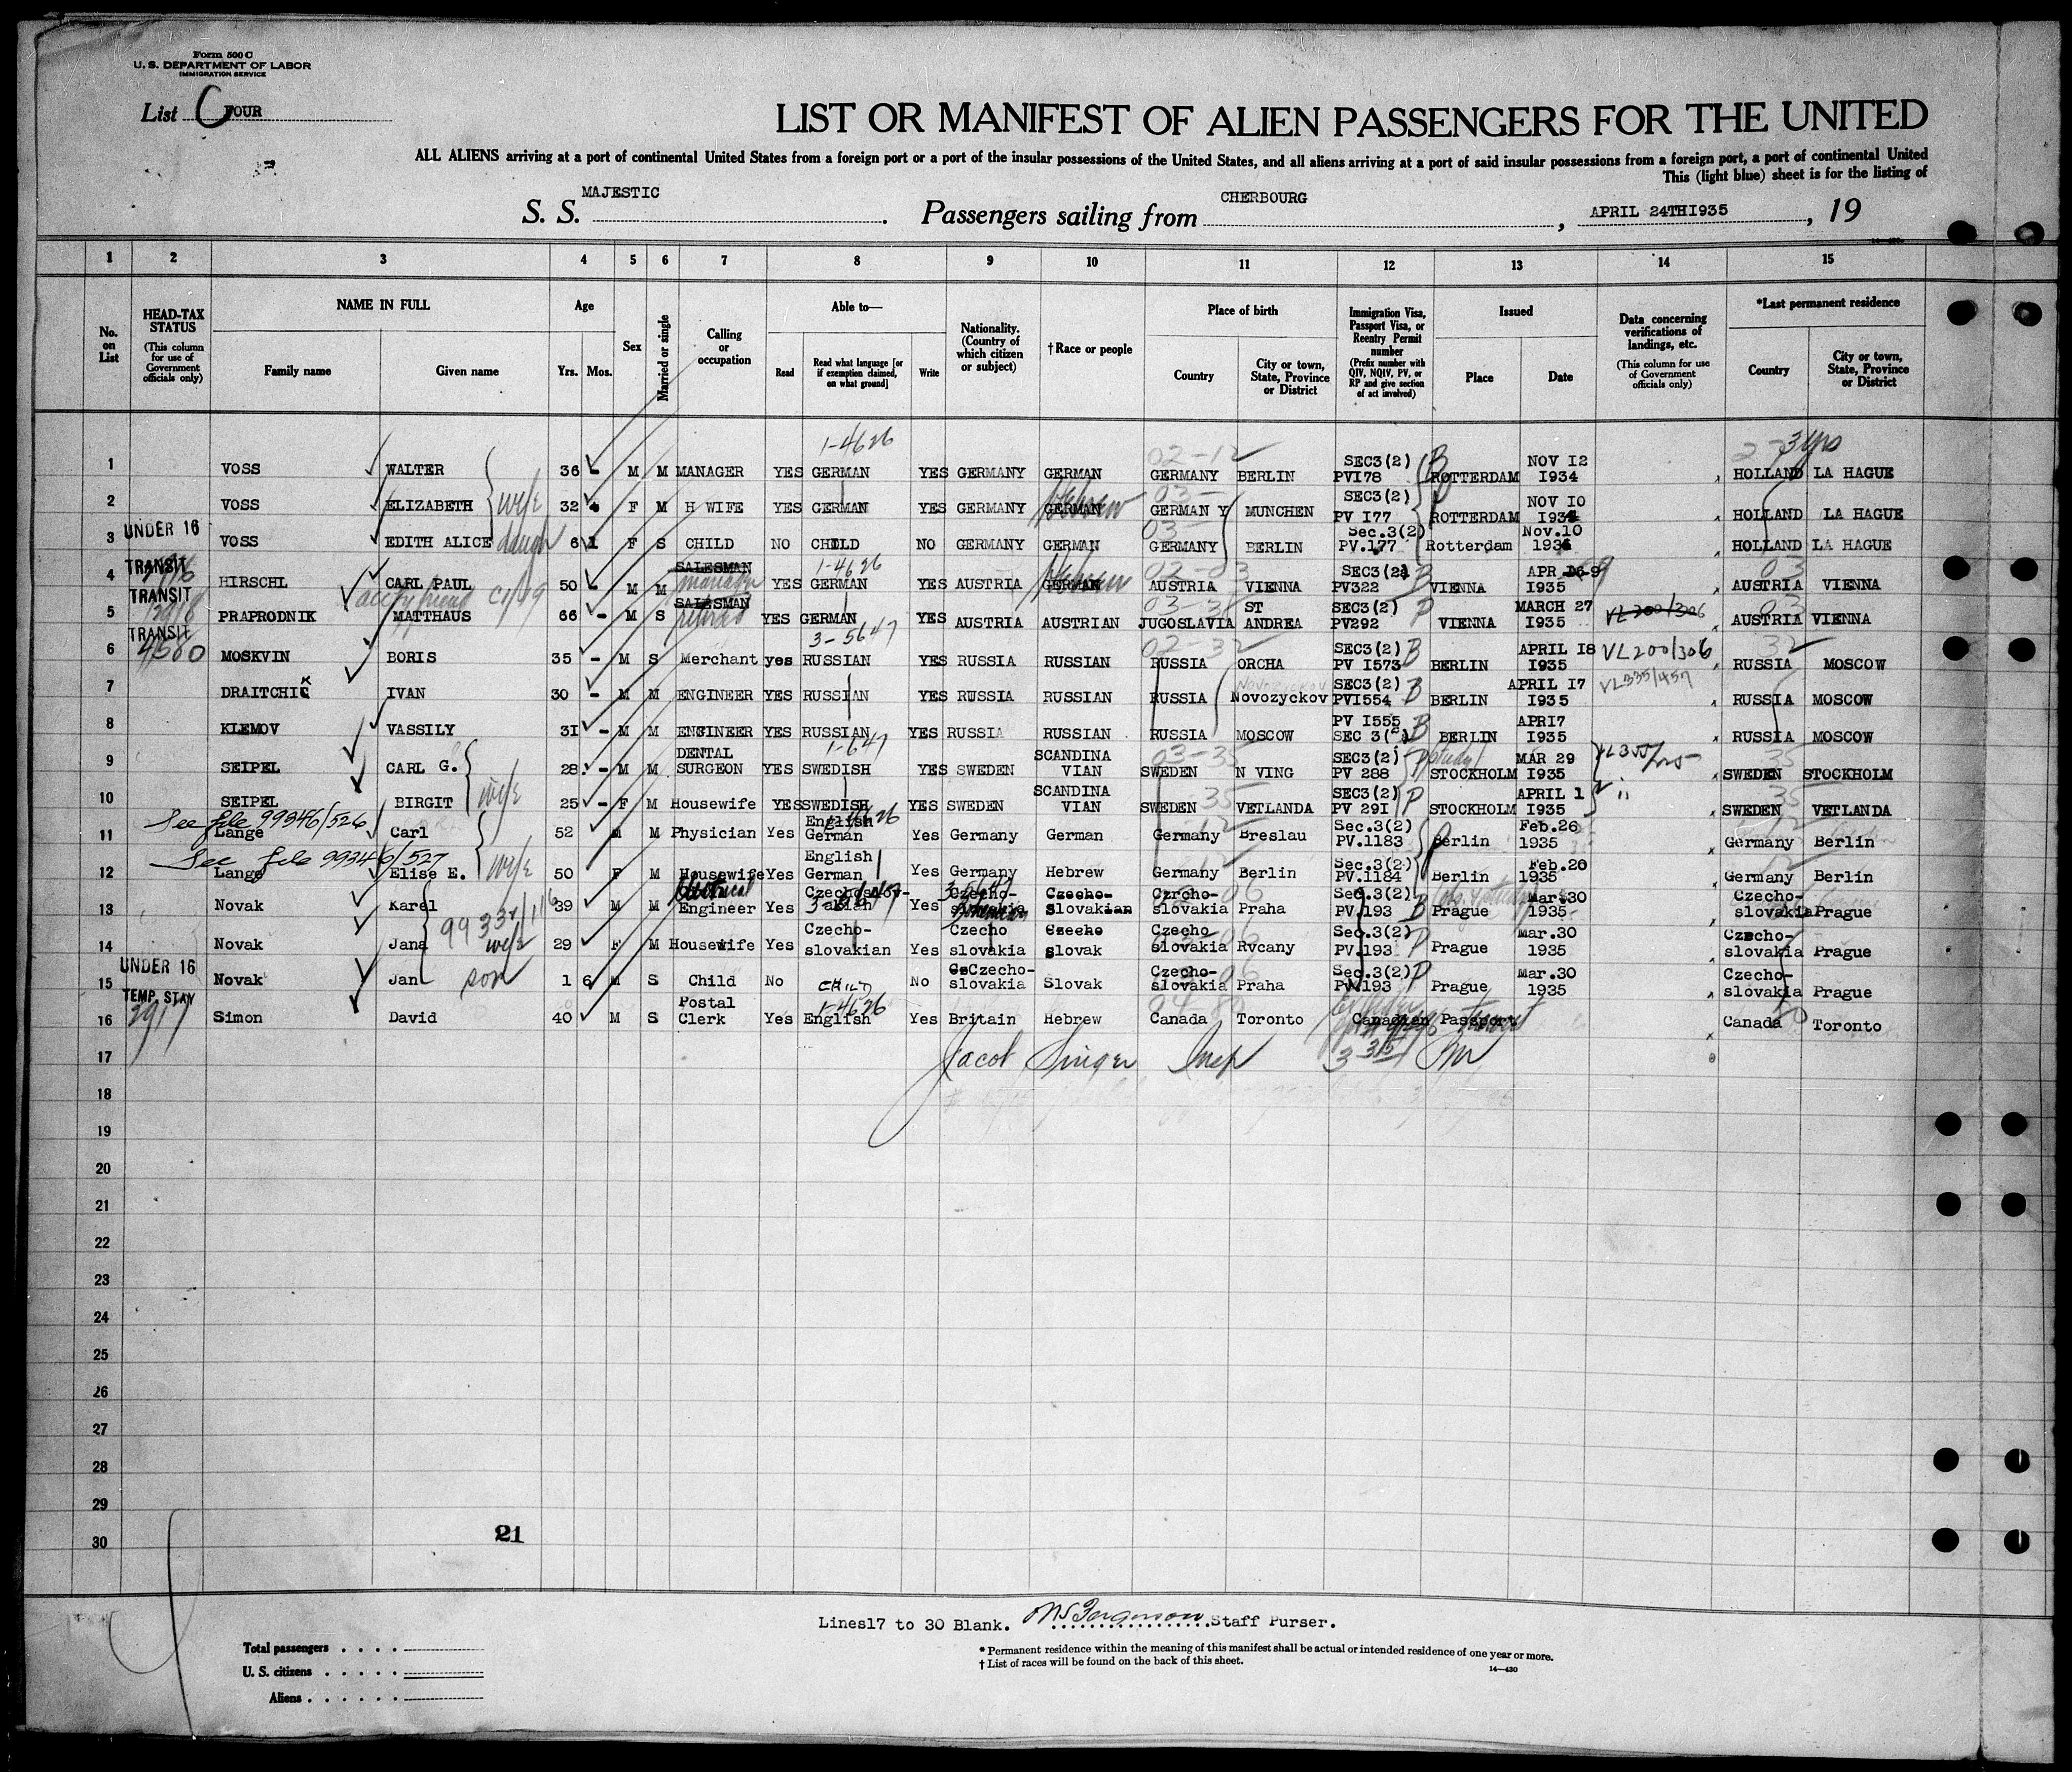 Form 500 C
U. S. DEPARTMENT OF LABOR
IMMIGRATION SERVICE
List FOUR
LIST OR MANIFEST OF ALIEN PASSENGERS FOR THE UNITED
ALL ALIENS arriving at a port of continental United States from a foreign port or a port of the insular possessions of the United States, and all aliens arriving at a port of said insular possessions from a foreign port, a port of continental United
This (light blue) sheet is for the listing of
S. S. MAJESTIC. Passengers sailing from CHERBOURG, APRIL 24THI935, 19
1 2 3 4 5 6 7 8 9 10 11 12 13 14 15
No. on List
HEAD-TAX STATUS (This column for use of Government officials only)
NAME IN FULL
Family name Given name
Age
Yrs. Mos.
Sex
Married or single
Calling or occupation
Able to—
Read
Read what language [or if exemption claimed, on what ground]
Write
Nationality. (Country of which citizen or subject)
†Race or people
Place of birth
Country
City or town, State, Province or District
Immigration Visa, Passport Visa, or Reentry Permit number (Prefix number with QIV, NQIV, PV, or RP and give section of act involved)
Issued
Place Date
Data concerning verifications of landings, etc. (This column for use of Government officials only)
*Last permanent residence
Country
City or town, State, Province or District
1-4626 02-12 3 yrs
1 VOSS WALTER 36 - M M MANAGER YES GERMAN YES GERMANY GERMAN GERMANY BERLIN SEC3(2) PVI78 B ROTTERDAM NOV I2 I934 HOLLAND LA HAGUE
2 VOSS ELIZABETH wife 32 F M H WIFE YES GERMAN YES GERMANY GERMAN Hebrew GERMAN Y MUNCHEN SEC3(2) PV I77 ROTTERDAM NOV I0 I934 HOLLAND LA HAGUE
UNDER 16
3 VOSS EDITH ALICE daugh 6 1 F S CHILD NO CHILD NO GERMANY GERMAN GERMANY BERLIN Sec.3(2) PV.177 Rotterdam Nov.10 1934 HOLLAND LA HAGUE
TRANSIT
4 HIRSCHL CARL PAUL 50 - M M SALESMAN manager YES GERMAN 1-4626 YES AUSTRIA GERMAN Hebrew AUSTRIA VIENNA SEC3(2) PV322 B VIENNA APR I935 AUSTRIA VIENNA
TRANSIT
5 PRAPRODNIK MATTHAUS 66 - M S SALESMAN retired YES GERMAN YES AUSTRIA AUSTRIAN JUGOSLAVIA ST ANDREA SEC3(2) PV292 P VIENNA MARCH 27 I935 VL200/306 AUSTRIA VIENNA
TRANSIT
6 MOSKVIN BORIS 35 - M S Merchant yes RUSSIAN 3-5647 YES RUSSIA RUSSIAN RUSSIA ORCHA SEC3(2) PV I573 B BERLIN APRIL I8 I935 VL200/306 RUSSIA MOSCOW
7 DRAITCHIK IVAN 30 - M M ENGINEER YES RUSSIAN YES RUSSIA RUSSIAN RUSSIA Novozyckov SEC3(2) PVI554 B BERLIN APRIL I7 I935 VL335/457 RUSSIA MOSCOW
8 KLEMOV VASSILY 3I - M M ENGINEER YES RUSSIAN YES RUSSIA RUSSIAN RUSSIA MOSCOW PV I555 SEC 3(2) B BERLIN APRI7 I935 RUSSIA MOSCOW
9 SEIPEL CARL G. 28 - M M DENTAL SURGEON YES SWEDISH 1-647 YES SWEDEN SCANDINA VIAN SWEDEN N VING SEC3(2) PV 288 P study STOCKHOLM MAR 29 I935 SWEDEN STOCKHOLM
10 SEIPEL BIRGIT wife 25 - F M Housewife YES SWEDISH YES SWEDEN SCANDINA VIAN SWEDEN VETLANDA SEC3(2) PV 29I P STOCKHOLM APRIL 1 I935 SWEDEN VETLANDA
See file 99346/526
11 Lange Carl 52 M M Physician Yes English German Yes Germany German Germany Breslau Sec.3(2) PV.1183 Berlin Feb.26 1935 Germany Berlin
See file 99346/527
12 Lange Elise E. wife 50 F M Housewife Yes English German Yes Germany Hebrew Germany Berlin Sec.3(2) PV.1184 Berlin Feb.26 1935 Germany Berlin
13 Novak Karel 39 M M Electrical Engineer Yes Czechoslov-akian Yes Czecho-slovakia Czecho-Slovakian Czrcho-slovakia Praha Sec.3(2) PV.193 B Prague Mar.30 1935 Czecho-slovakia Prague
14 Novak Jana wife 29 F M Housewife Yes Czecho-slovakian Yes Czecho slovakia Czecho slovak Czecho slovakia Rvcany Sec.3(2) PV.193 P Prague Mar.30 1935 Czecho-slovakia Prague
UNDER 16
15 Novak Jan son 1 6 M S Child No CHILD No Czecho-slovakia Slovak Czecho-slovakia Praha Sec.3(2) PV.193 P Prague Mar.30 1935 Czecho-slovakia Prague
TEMP. STAY 2917
16 Simon David 40 M S Postal Clerk Yes English 1-4626 Yes Britain Hebrew Canada Toronto Canadian Passport Canada Toronto
17 Jacob Singer Insp
18
19
20
21
22
23
24
25
26
27
28
29
30
21
Lines17 to 30 Blank. Staff Purser.
Total passengers
U. S. citizens
Aliens
* Permanent residence within the meaning of this manifest shall be actual or intended residence of one year or more.
† List of races will be found on the back of this sheet.
14—430